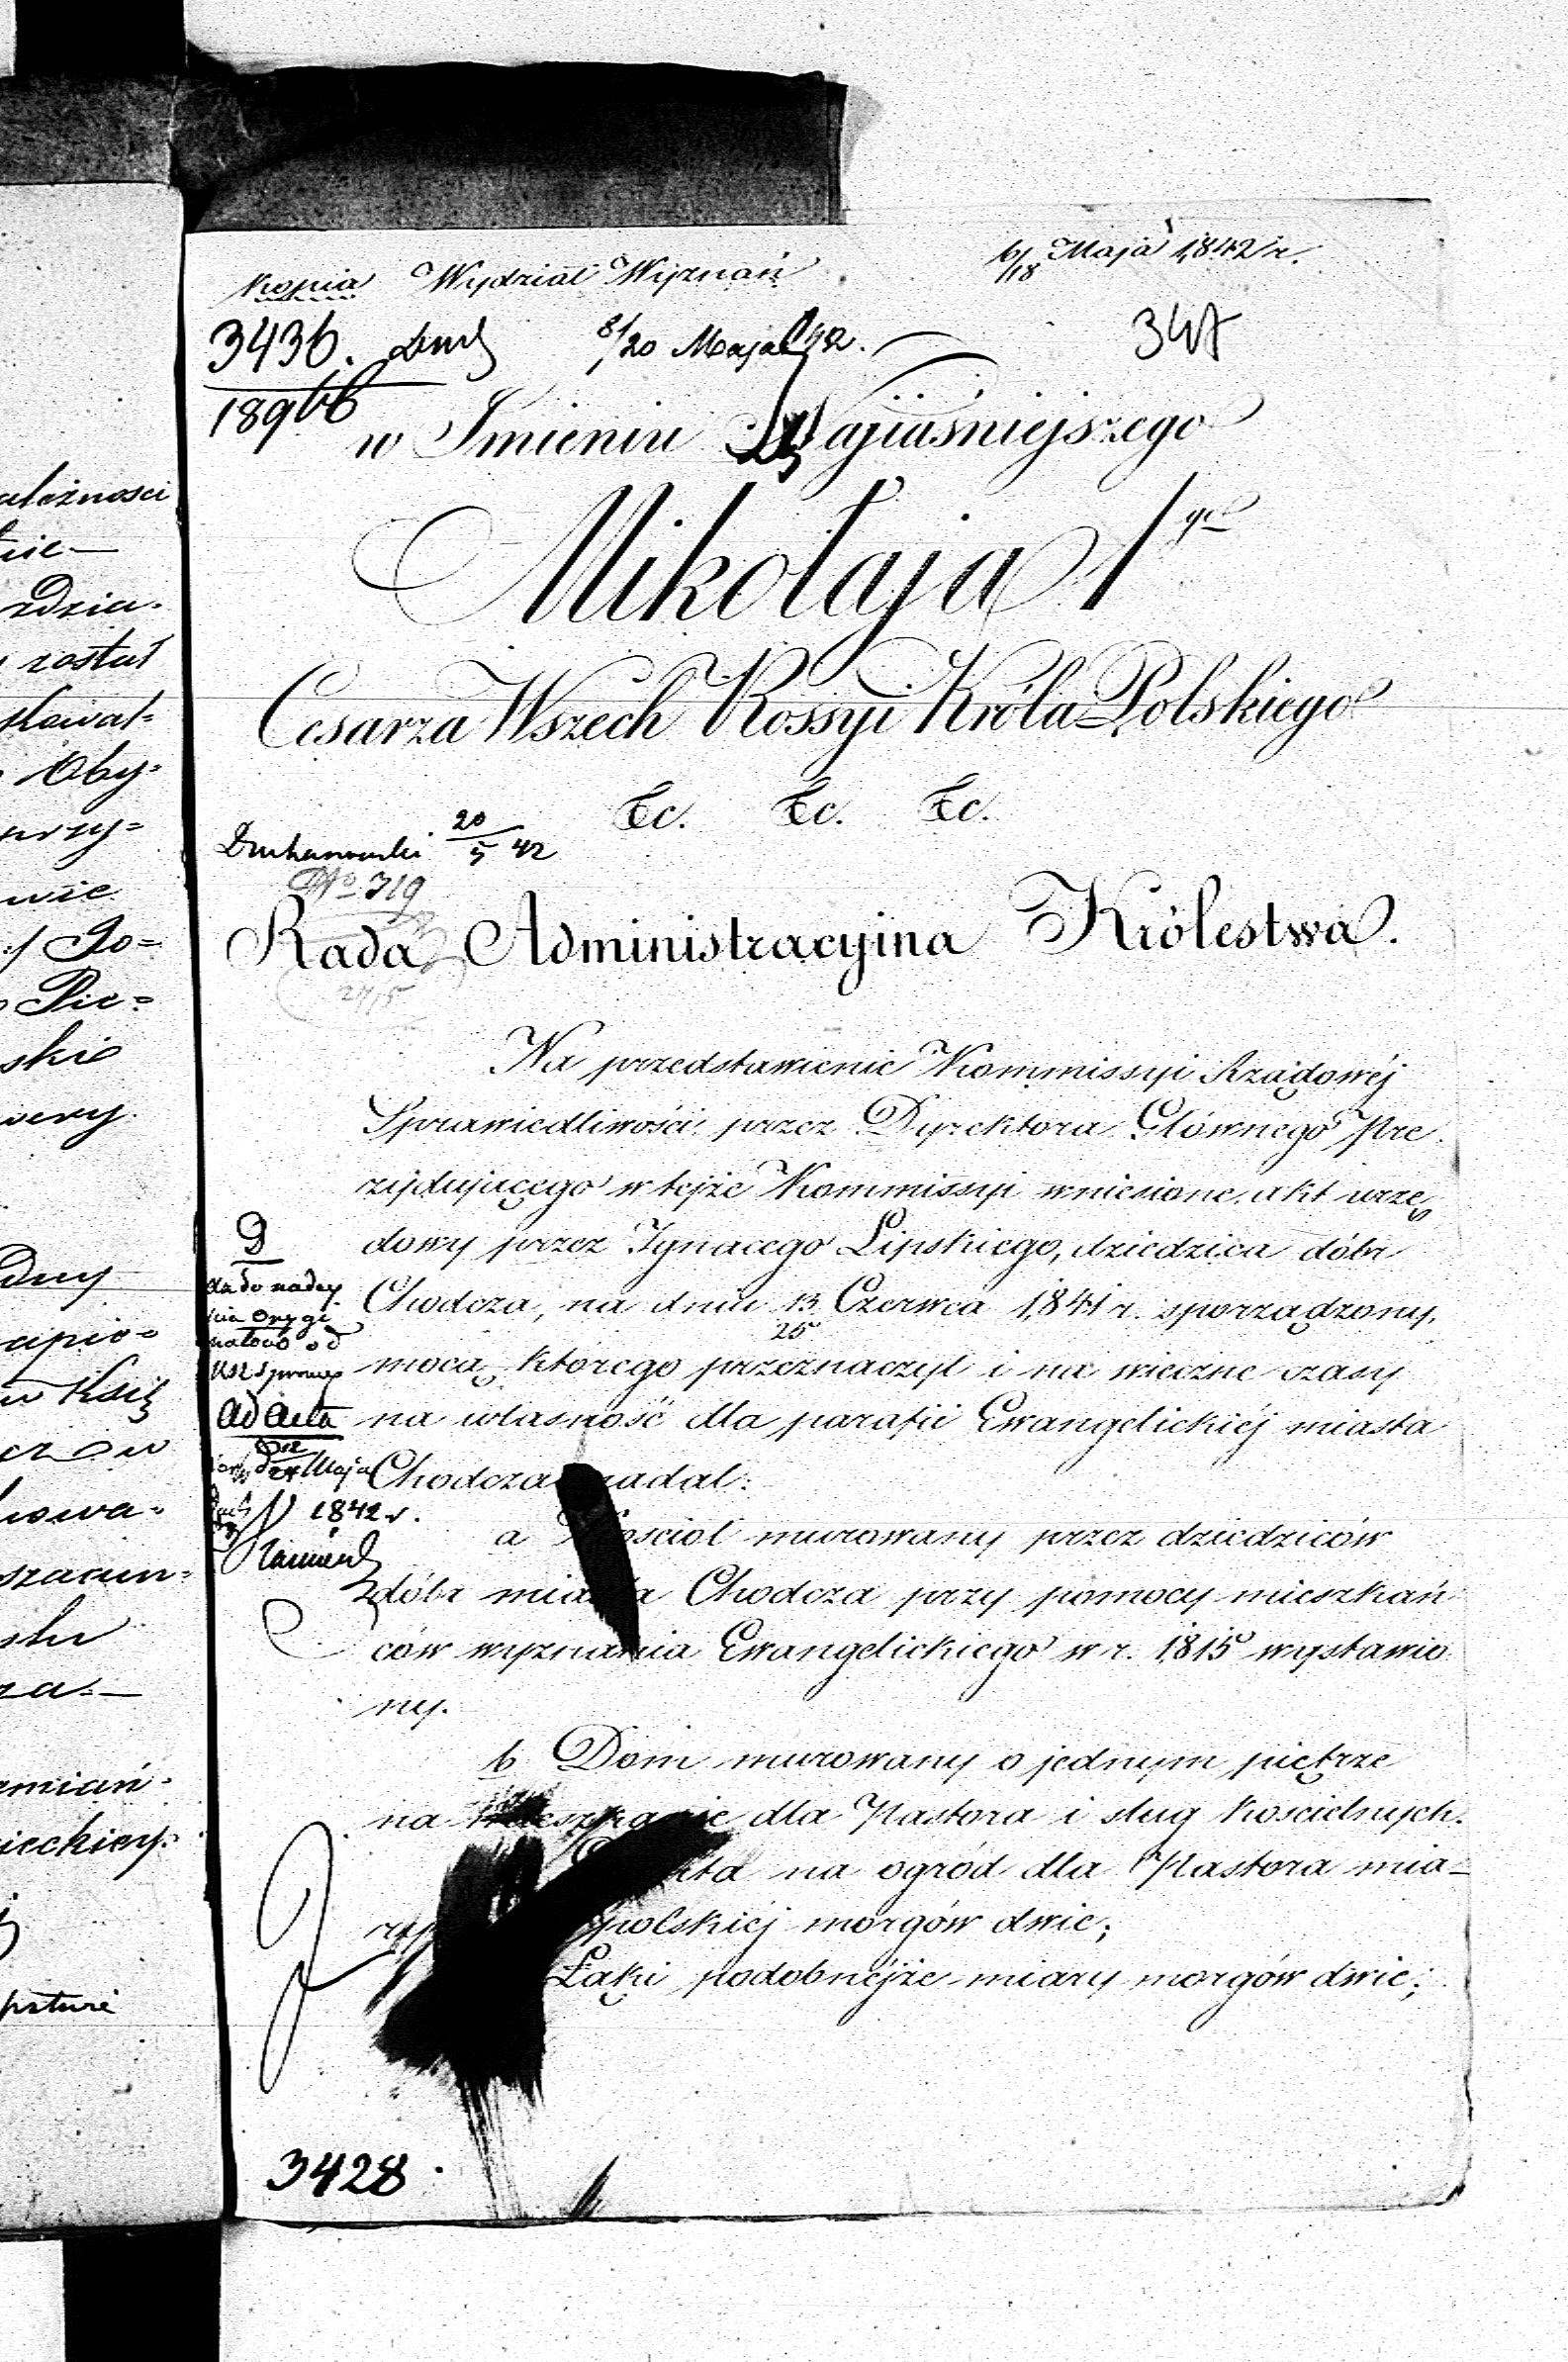 Kopia Wydział Wyznań 6/18 Maja 1842 r.
3436. 8/20 Maja 347
w Imieniu Najjaśniejszego
Mikołaja Igo
Cesarza Wszech Rossyi Króla Polskiego
&c. &c. &c.
20/5 42
No 319
Rada Administracyina Królestwa.
Na przedstawienie Kommissyi Rządowéj
Sprawiedliwości przez Dyrektora Głównego Pre
zydującego w tejże Kommissyi wniesione, akt urzę
dowy przez Ignacego Lipskiego, dziedzica dóbr
Chodcza, na dniu 13/25 Czerwca 1841 r. sporządzony,
mocą którego przeznaczył i na wieczne czasy
na własność dla parafii Ewangelickiéj miasta
Chodcza nadał:
a Kościół murowany przez dziedziców
dóbr miasta Chodcza przy pomocy mieszkań
ców wyznania Ewangelickiego w r. 1815 wystawio
ny.
b Dom murowany o jednym piętrze
na mieszkanie dla Pastora i sług kościelnych.
na ogród dla Pastora mia-
polskiéj morgów dwie;
Łąki podobnéjże miary morgów dwie;
ad acta
24 Maja
1842 r.
3428.
ależności
zdzia.
został
Oby=
przy=
wie
Jo=
Pie=
skie